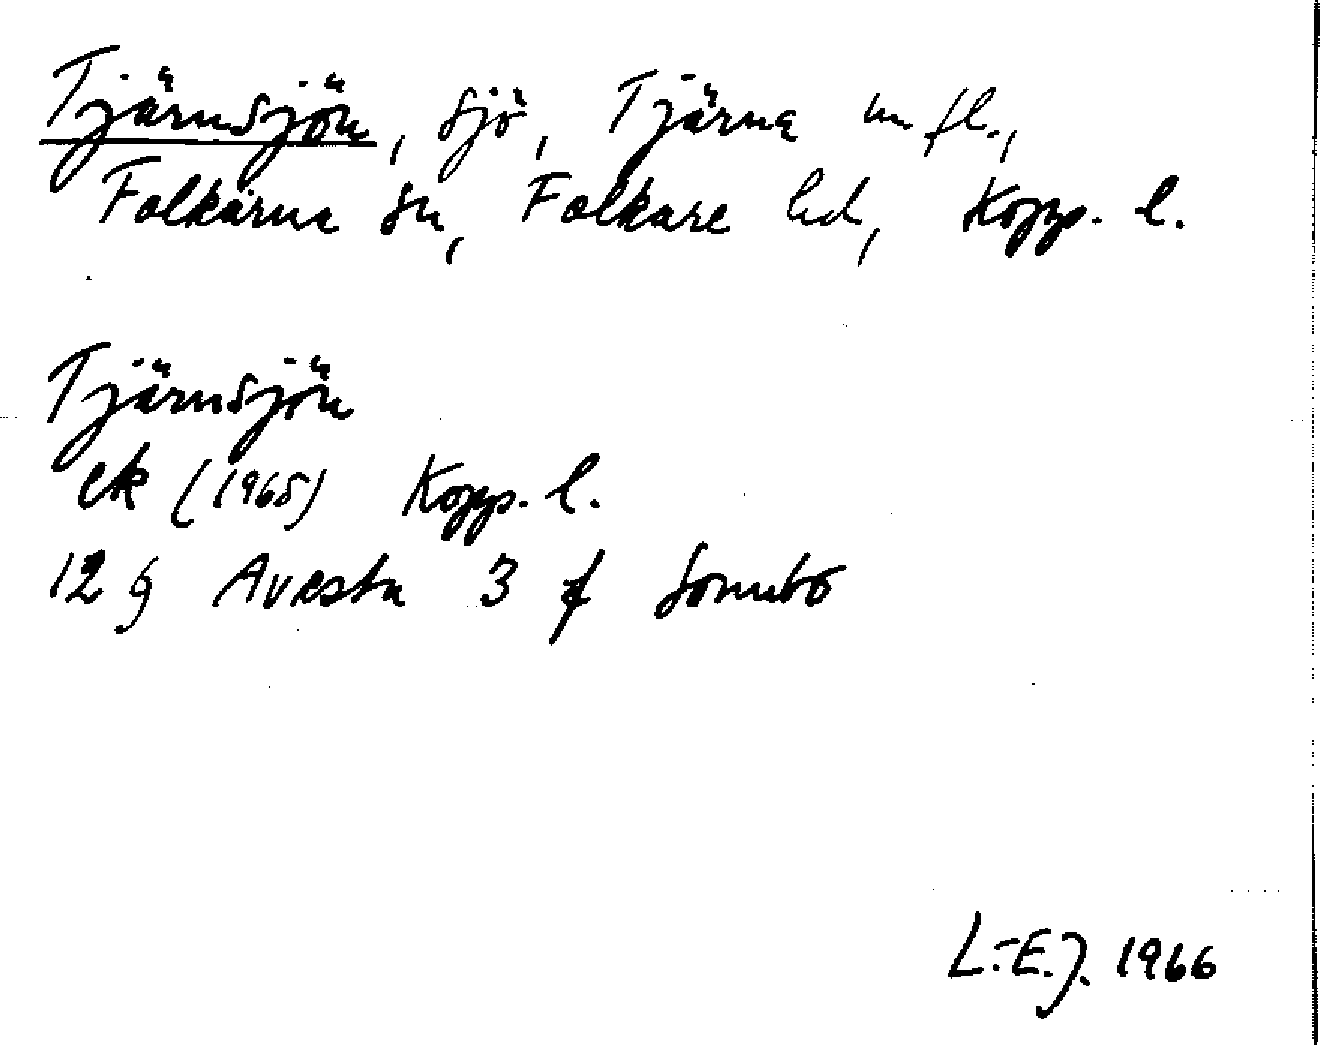 Tjärnsjön, sjö, Tjärna m fl.,
Folkärna sn, Folkare hd, Kopp. l.
Tjärnsjön
ek (1965) Kopp. l.
12 g Avesta 3 f Sonnbo
L.-E.J. 1966